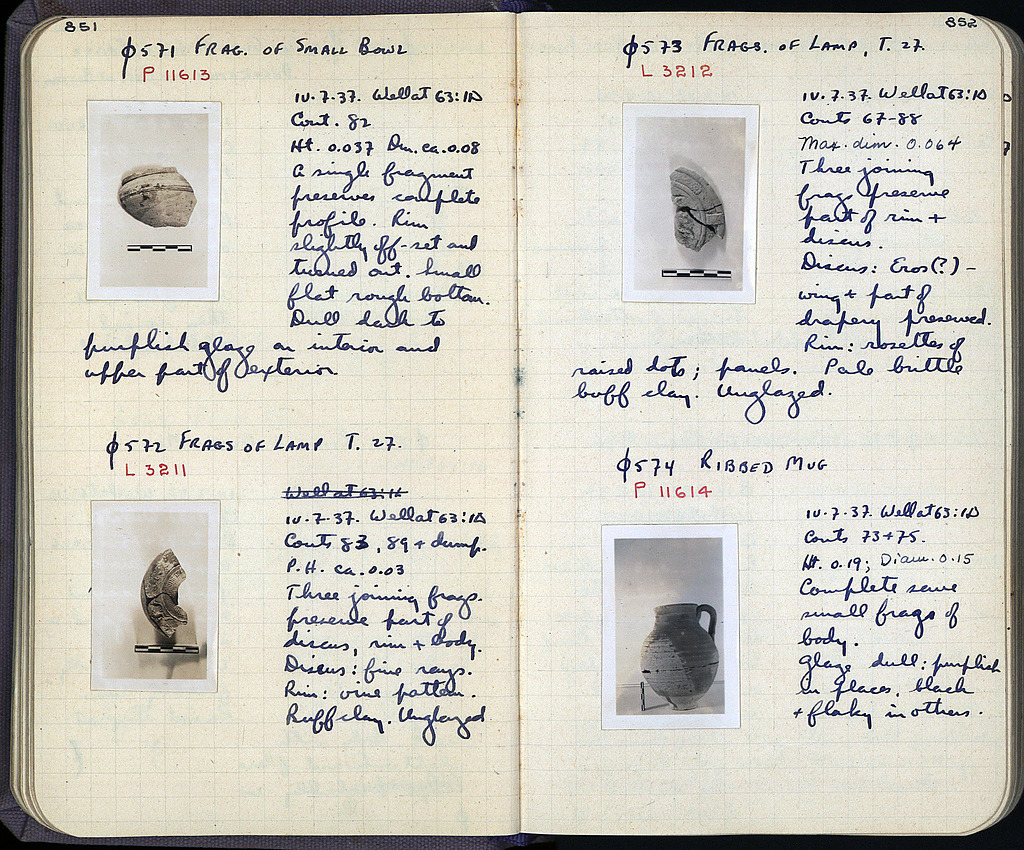 851
φ571 FRAG. OF SMALL BOWL
P 11613
IV.7.37. Well at 63:ΙΔ
Cont. 82
Ht. 0.037 Dm. ca. 0.08
A single fragment
preserves complete
profile. Rim
slightly off-set and
turned out. Small
flat rough bottom.
Dull dark to
purplish glaze on interior and
upper part of exterior.
φ572 FRAGS OF LAMP T. 27.
L 3211
Well at 63:ΙΔ
IV.7.37. Well at 63:ΙΔ
Conts 83, 89 + dump.
P.H. ca. 0.03
Three joining frags.
preserve part of
discus, rim + body.
Discus: fine rays.
Rim: vine pattern.
Buff clay. Unglazed
852
φ573 FRAGS. OF LAMP, T. 27.
L 3212
IV.7.37. Well at 63:ΙΔ
Conts 67-88
Max. dim. 0.064
Three joining
frags preserve
part of rim +
discus.
Discus: Eros(?) -
wing + part of
drapery preserved.
Rim: rosettes of
raised dots; panels. Pale brittle
buff clay. Unglazed.
φ574 RIBBED MUG
P 11614
IV.7.37. Well at 63:ΙΔ
Conts 73+75.
Ht. 0.19; Diam. 0.15
Complete save
small frags of
body.
Glaze dull: purplish
in places, black
+ flaky in others.